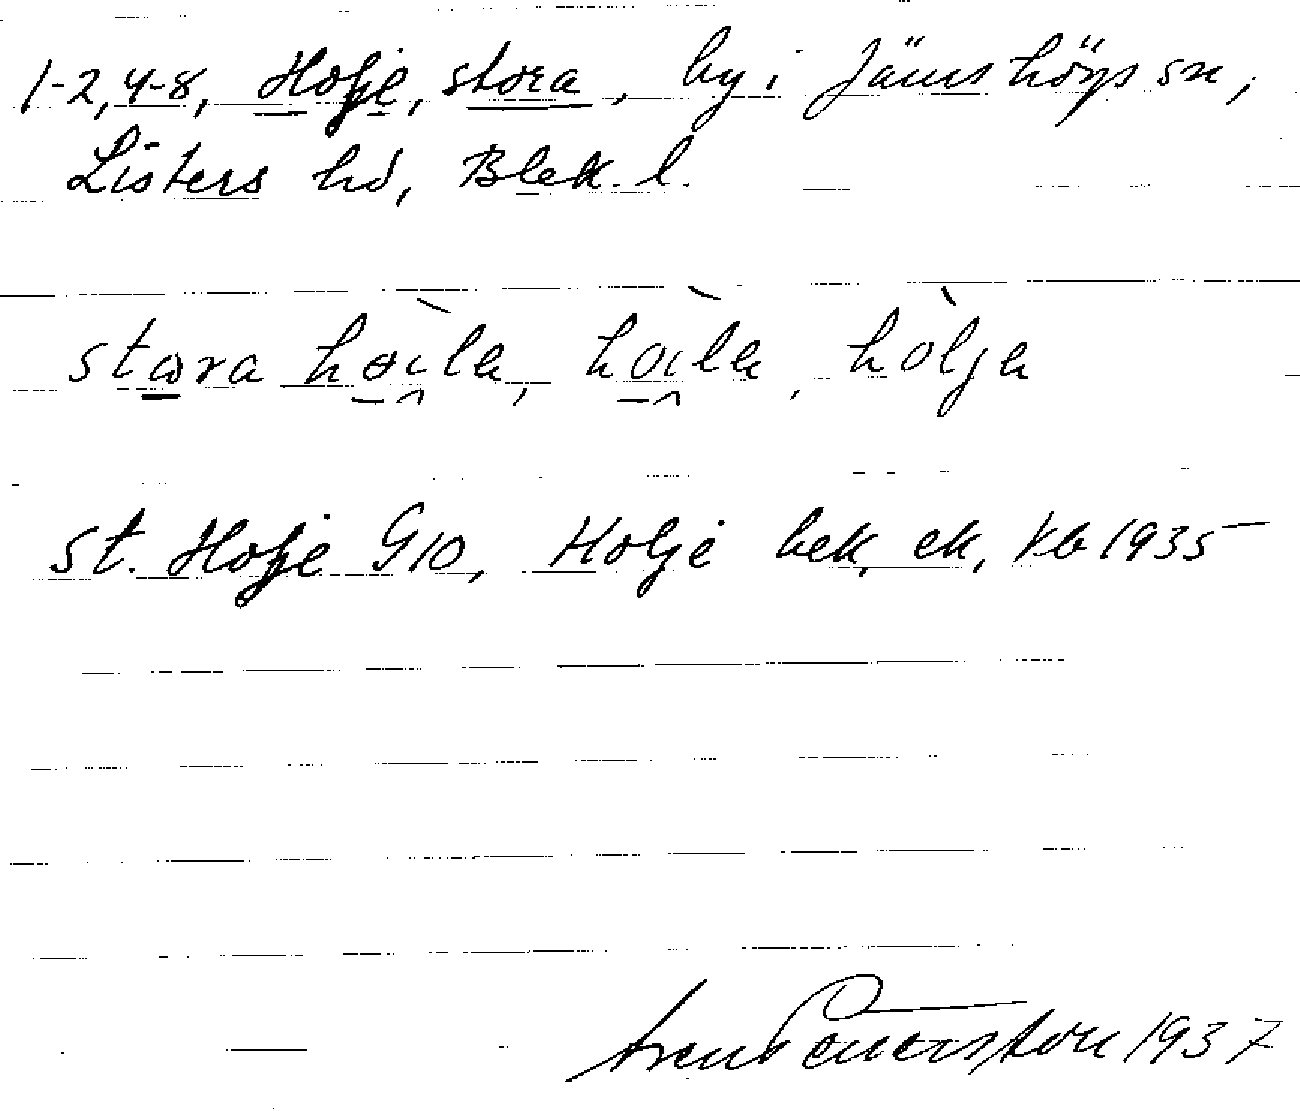 1-2, 4-8, Holje, stora, by i Jämshögs sn,
Listers hd, Blek. l.
stora hoila, hoila, holja
St. Holje G10, Holje bek, ek, Kb 1935
1937